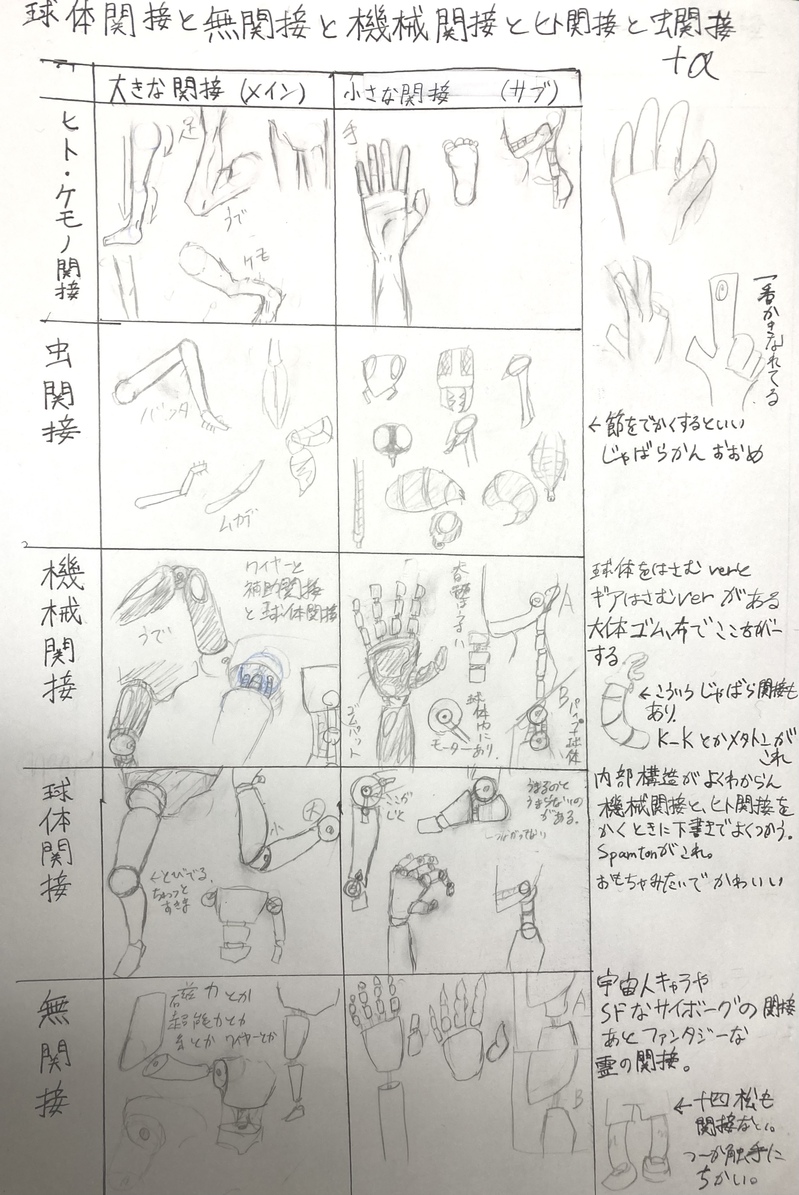 球体関接と無関接と機械関接とヒト関接と虫関接
+α
大きな関接(メイン)
小さな関接 (サブ)
ヒト・ケモノ関接
足
うで
ケモ
手
一番かきなれてる
虫関接
バッタ
ムカデ
←節をでかくするといい
じゃばらかんおおめ
機械関接
うで
ワイヤーと
補助関接
と球体関接
ゴムパット
モーター
球体内に
あり.
A
B
球体をはさむverと
ギアはさむverがある
大体ゴム、布でここをガード
する
←こういうじゃばら関接も
あり
K_Kとかメタトンが
これ
球体関接
←とびでる.
ちょっと
すきま
小
大
うまるのと
うまらないの
がある.
内部構造がよくわからん
機械関接と、ヒト関接を
かくときに下書きでよくつかう.
Spamtonがこれ。
おもちゃみたいでかわいい
無関接
磁力とか
超能力とか
糸とかワイヤーとか
A
B
宇宙人キャラや
SFなサイボーグの関接
あとファンタジーな
霊の関接。
←十四松も
関接ない。
つーか触手に
ちかい。